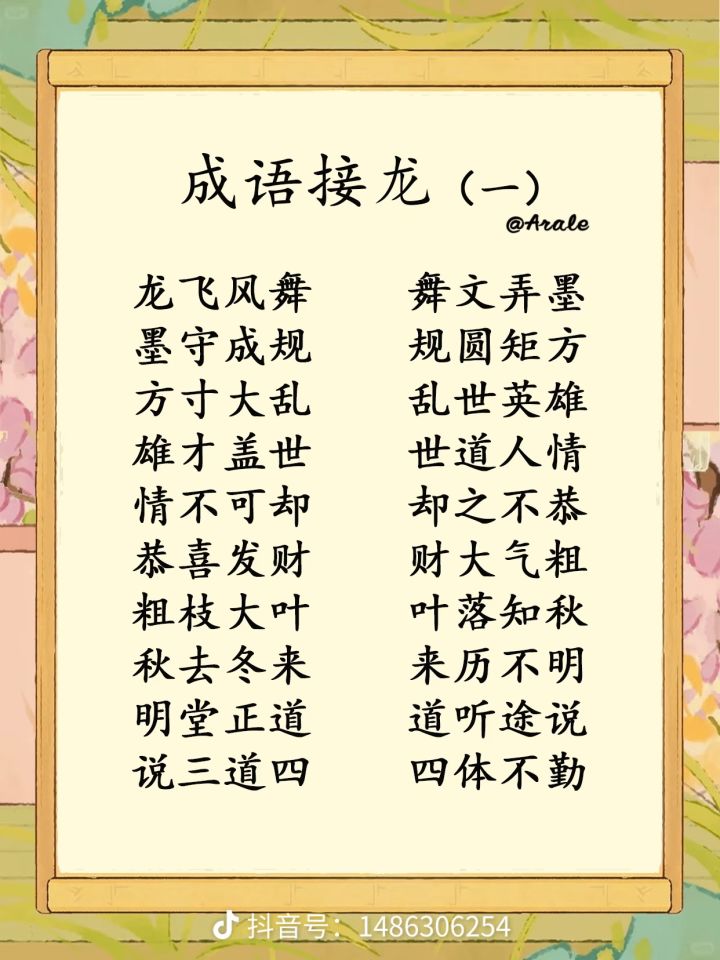 成语接龙（一）
@Arale
龙飞风舞 舞文弄墨
墨守成规 规圆矩方
方寸大乱 乱世英雄
雄才盖世 世道人情
情不可却 却之不恭
恭喜发财 财大气粗
粗枝大叶 叶落知秋
秋去冬来 来历不明
明堂正道 道听途说
说三道四 四体不勤
抖音号：1486306254